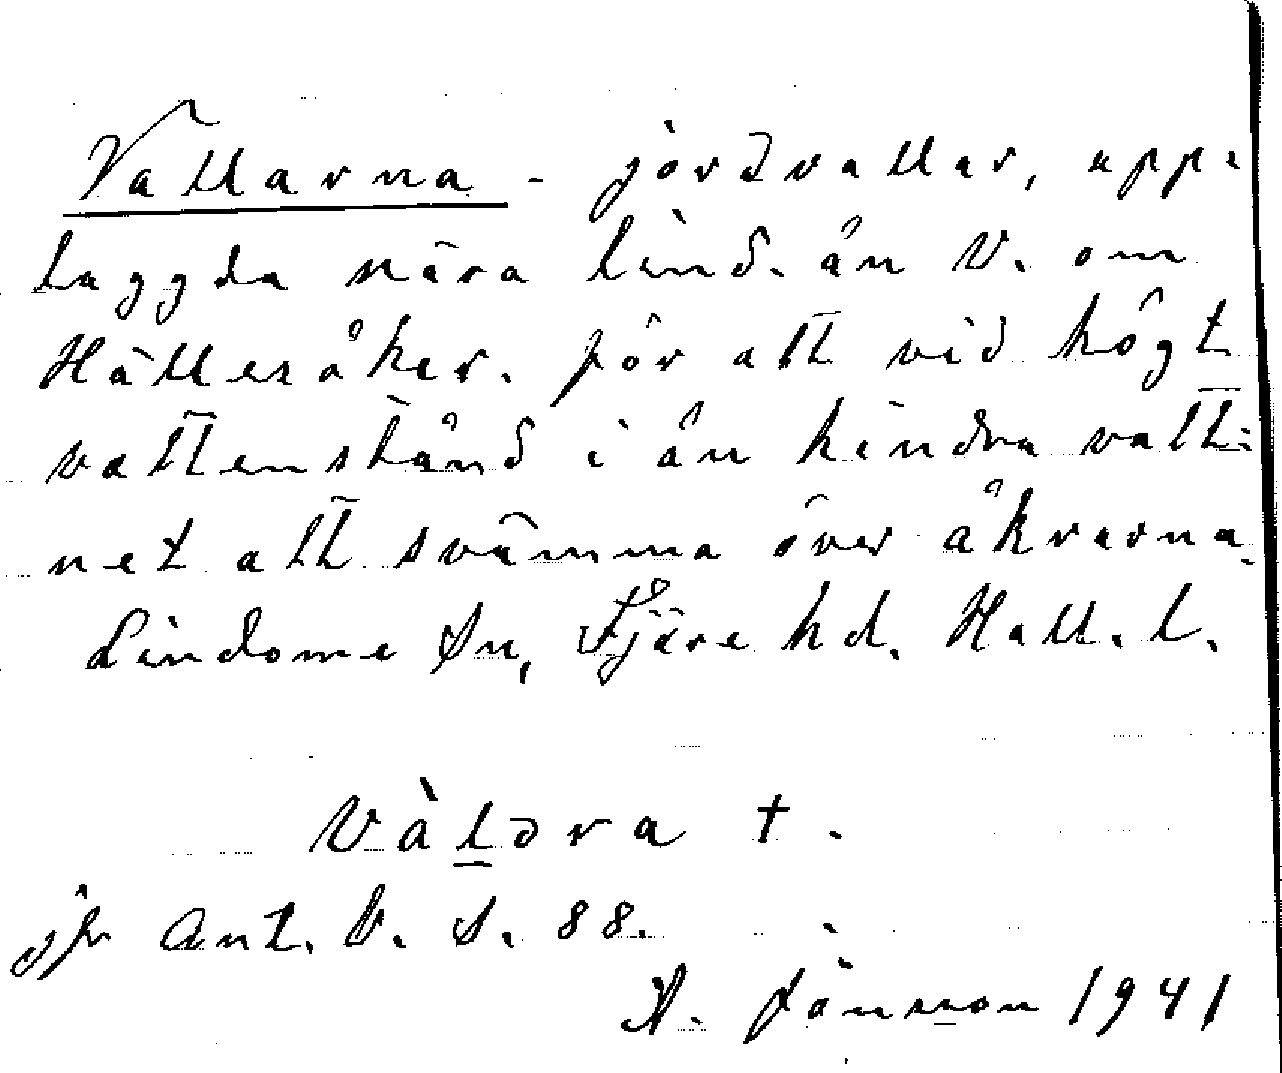 Vallarna - jordvallar, upp-
laggda nära Lind. ån V. om
Hällesåker. för att vid högt
vattenstånd i ån hindra vatt-
net att svämma över åkrarna.
Lindome Sn, Fjäre hd. Hall. l.
Vàl̲ɔra †.
jfr Ant. b. S. 88.
A. Jönsson 1941